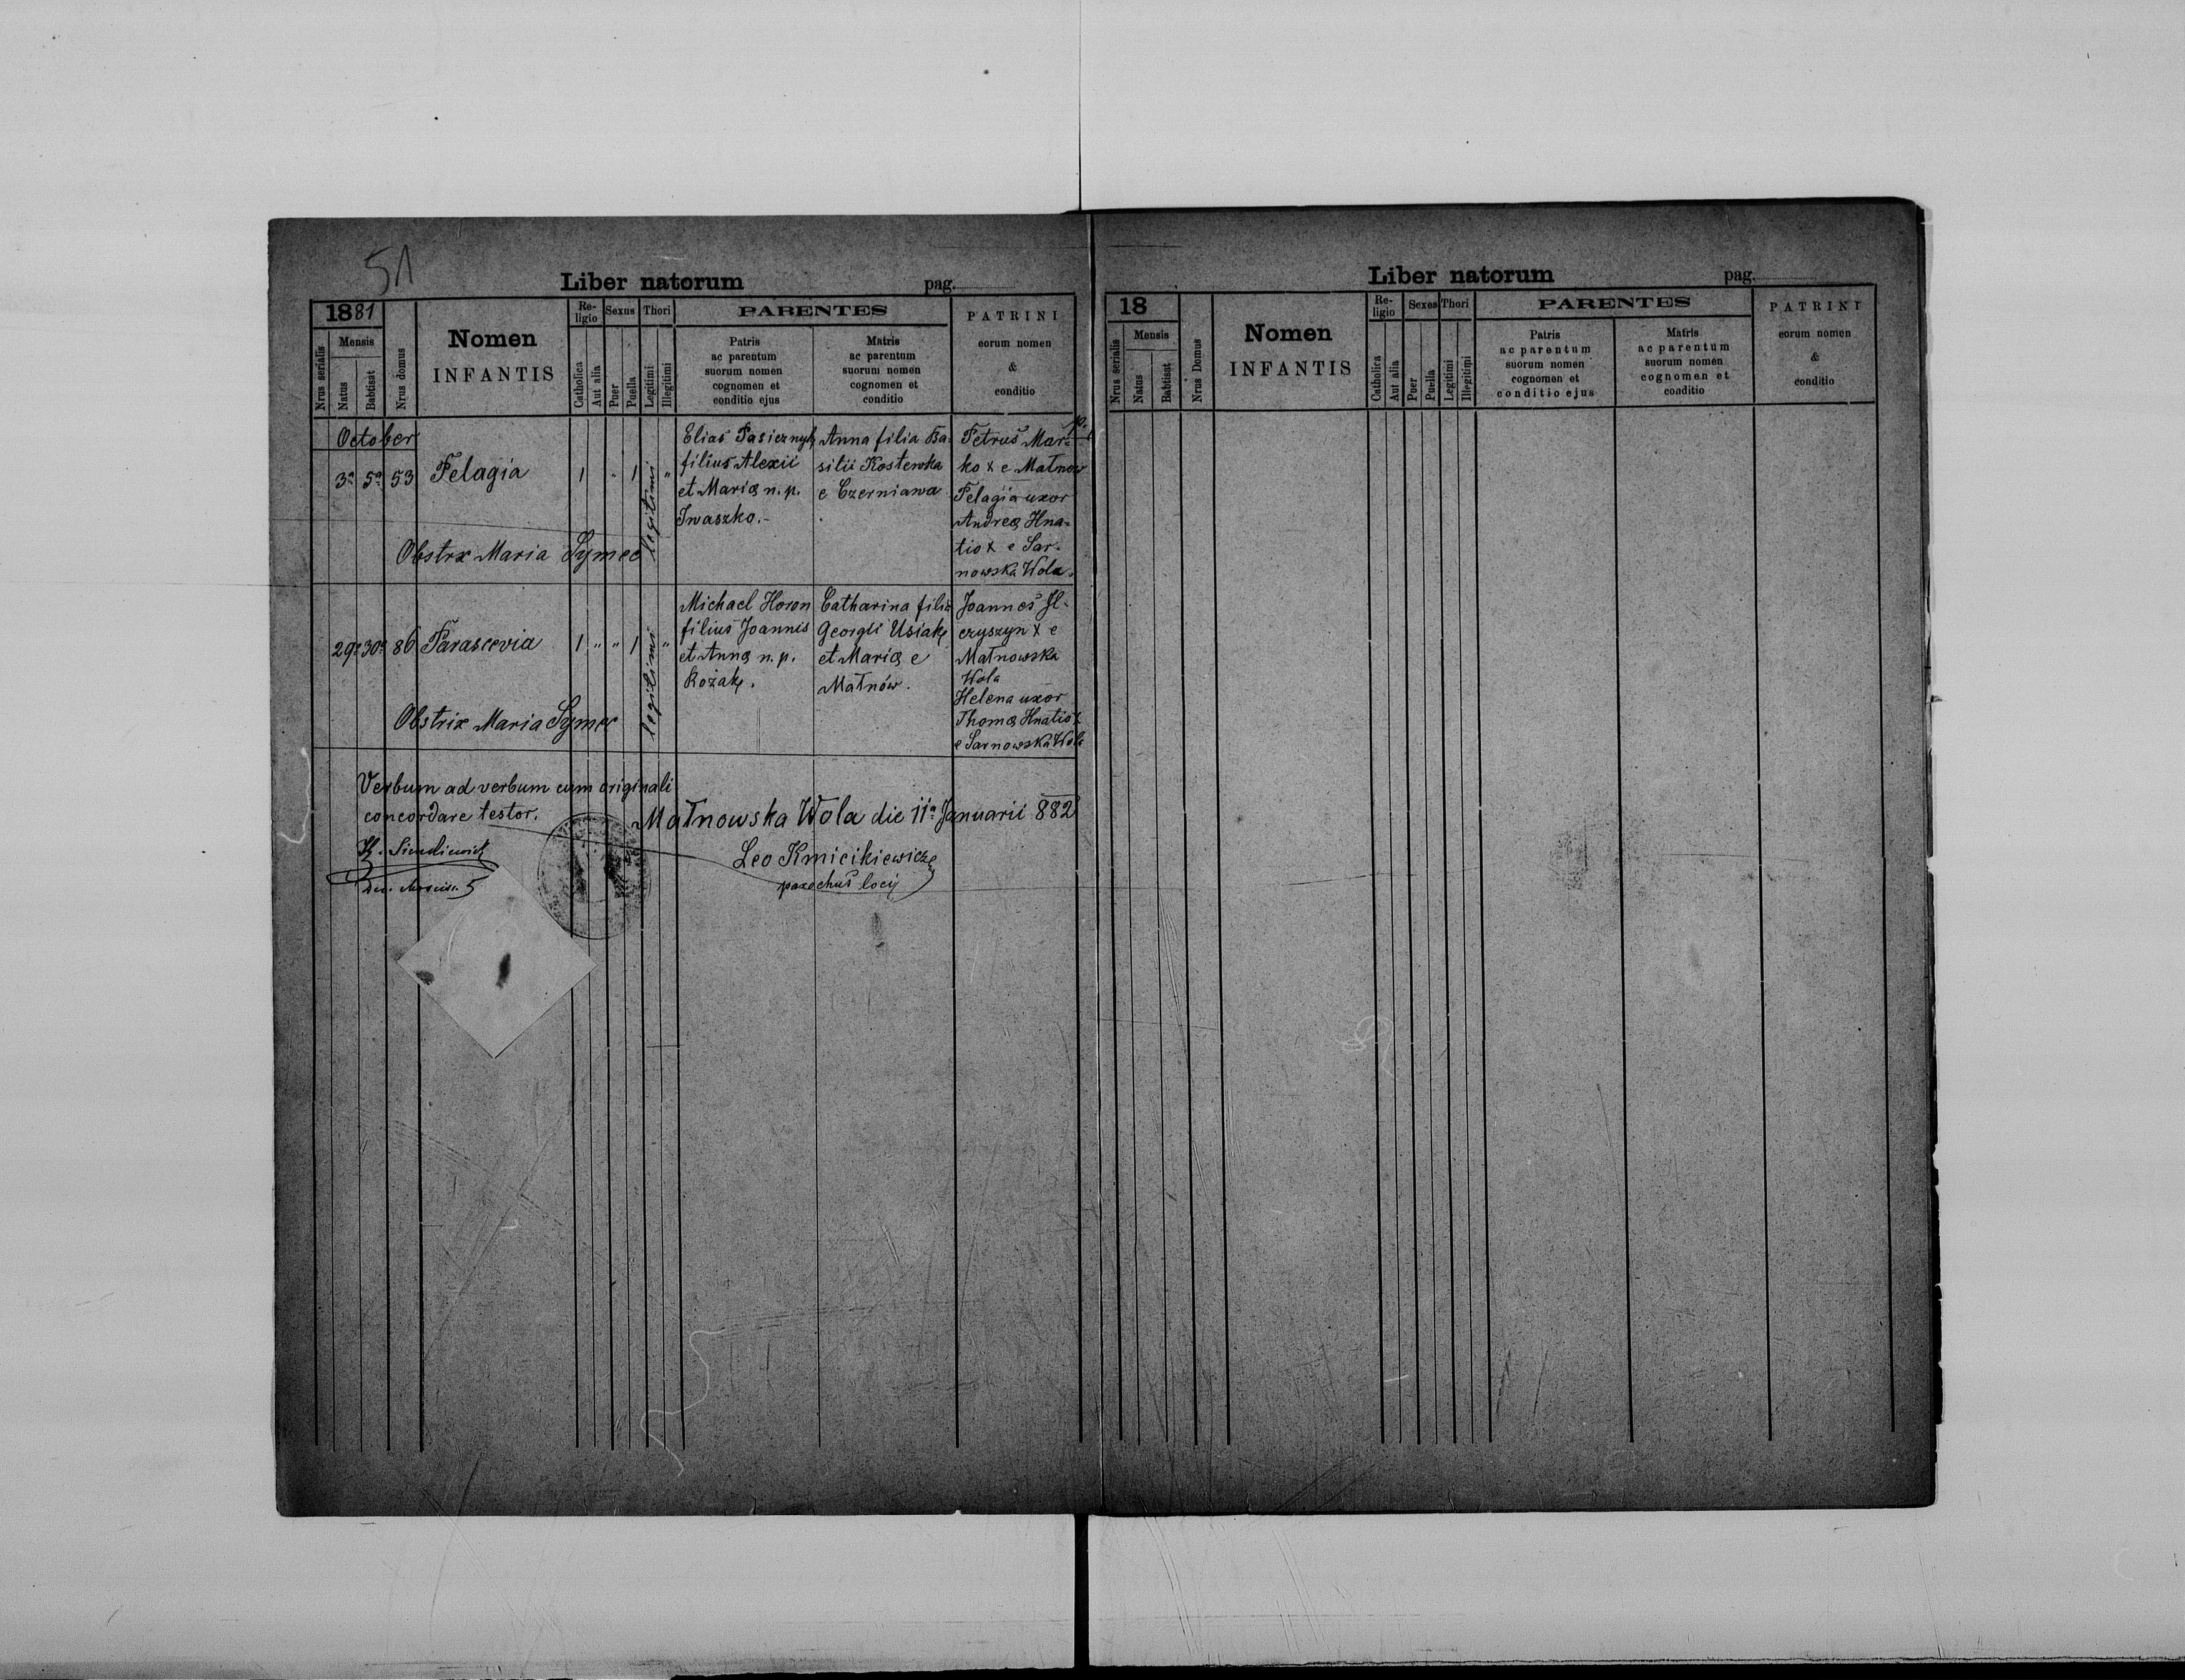 51
Liber natorum pag.
1881
Nrus serialis
Mensis
Natus
Babtisat
Nrus domus
Nomen
INFANTIS
Re-
ligio
Catholica
Aut alia
Sexus
Puer
Puella
Thori
Legitimi
Illegitimi
PARENTES
Patris
ac parentum
suorum nomen
cognomen et
conditio ejus
Matris
ac parentum
suorum nomen
cognomen et
conditio
PATRINI
eorum nomen
&
conditio
October
3a 5a 53 Pelagia 1 " 1 legitimi "
Elias Pasicznyk
filius Alexii
et Mariæ n. p.
Iwaszko.-
Anna filia Ba-
silii Kostewka
e Czerniawa
Petrus Mar-
ko x e Małnow
Pelagia uxor
Andreæ Hna-
tio x e Sar-
nowska Wola.
Obstrx Maria Symec
29a 30a 86 Parascevia 1 " " 1 legitimi "
Michael Horon
filius Joannis
et Annæ n. p.
Kożak.
Catharina filia
Georgii Usiak
et Mariæ e
Małnów.
Joannes Il-
czyszyn x e
Małnowska
Wola
Helena uxor
Thomæ Hnatio x
e Sarnowska Wola
Obstrix Maria Symec
Verbum ad verbum cum originali
concordare testor.
Małnowska Wola die 11a Januarii 882
Leo Kmicikiewicz
parochus loci
Liber natorum pag.
18
Nrus serialis
Mensis
Natus
Babtisat
Nrus Domus
Nomen
INFANTIS
Re-
ligio
Catholica
Aut alia
Sexes
Puer
Puella
Thori
Legitimi
Illegitimi
PARENTES
Patris
ac parentum
suorum nomen
cognomen et
conditio ejus
Matris
ac parentum
suorum nomen
cognomen et
conditio
PATRINI
eorum nomen
&
conditio